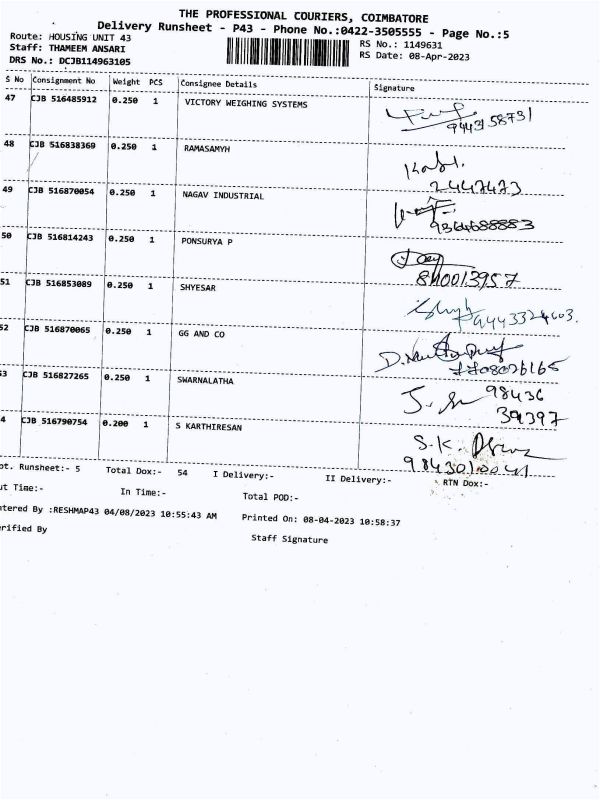 THE PROFESSIONAL COURIERS, COIMBATORE
Delivery Runsheet - P43 - Phone No.:0422-3505555 - Page No.:5
Route: HOUSING UNIT 43
Staff: THAMEEM ANSARI
DRS No.: DCJB114963105
RS No.: 1149631
RS Date: 08-Apr-2023
S No Consignment No Weight PCS Consignee Details Signature
47 CJB 516485912 0.250 1 VICTORY WEIGHING SYSTEMS
9443158731
48 CJB 516838369 0.250 1 RAMASAMYH
2447473
49 CJB 516870054 0.250 1 NAGAV INDUSTRIAL
9364688883
50 CJB 516814243 0.250 1 PONSURYA P
51 CJB 516853089 0.250 1 SHYESAR
52 CJB 516870065 0.250 1 GG AND CO
53 CJB 516827265 0.250 1 SWARNALATHA
98436
39397
4 CJB 516790754 0.200 1 S KARTHIRESAN
S.K.
9843010041
ot. Runsheet:- 5 Total Dox:- 54 I Delivery:- II Delivery:- RTN Dox:-
ut Time:- In Time:- Total POD:-
ntered By :RESHMAP43 04/08/2023 10:55:43 AM Printed On: 08-04-2023 10:58:37
erified By Staff Signature